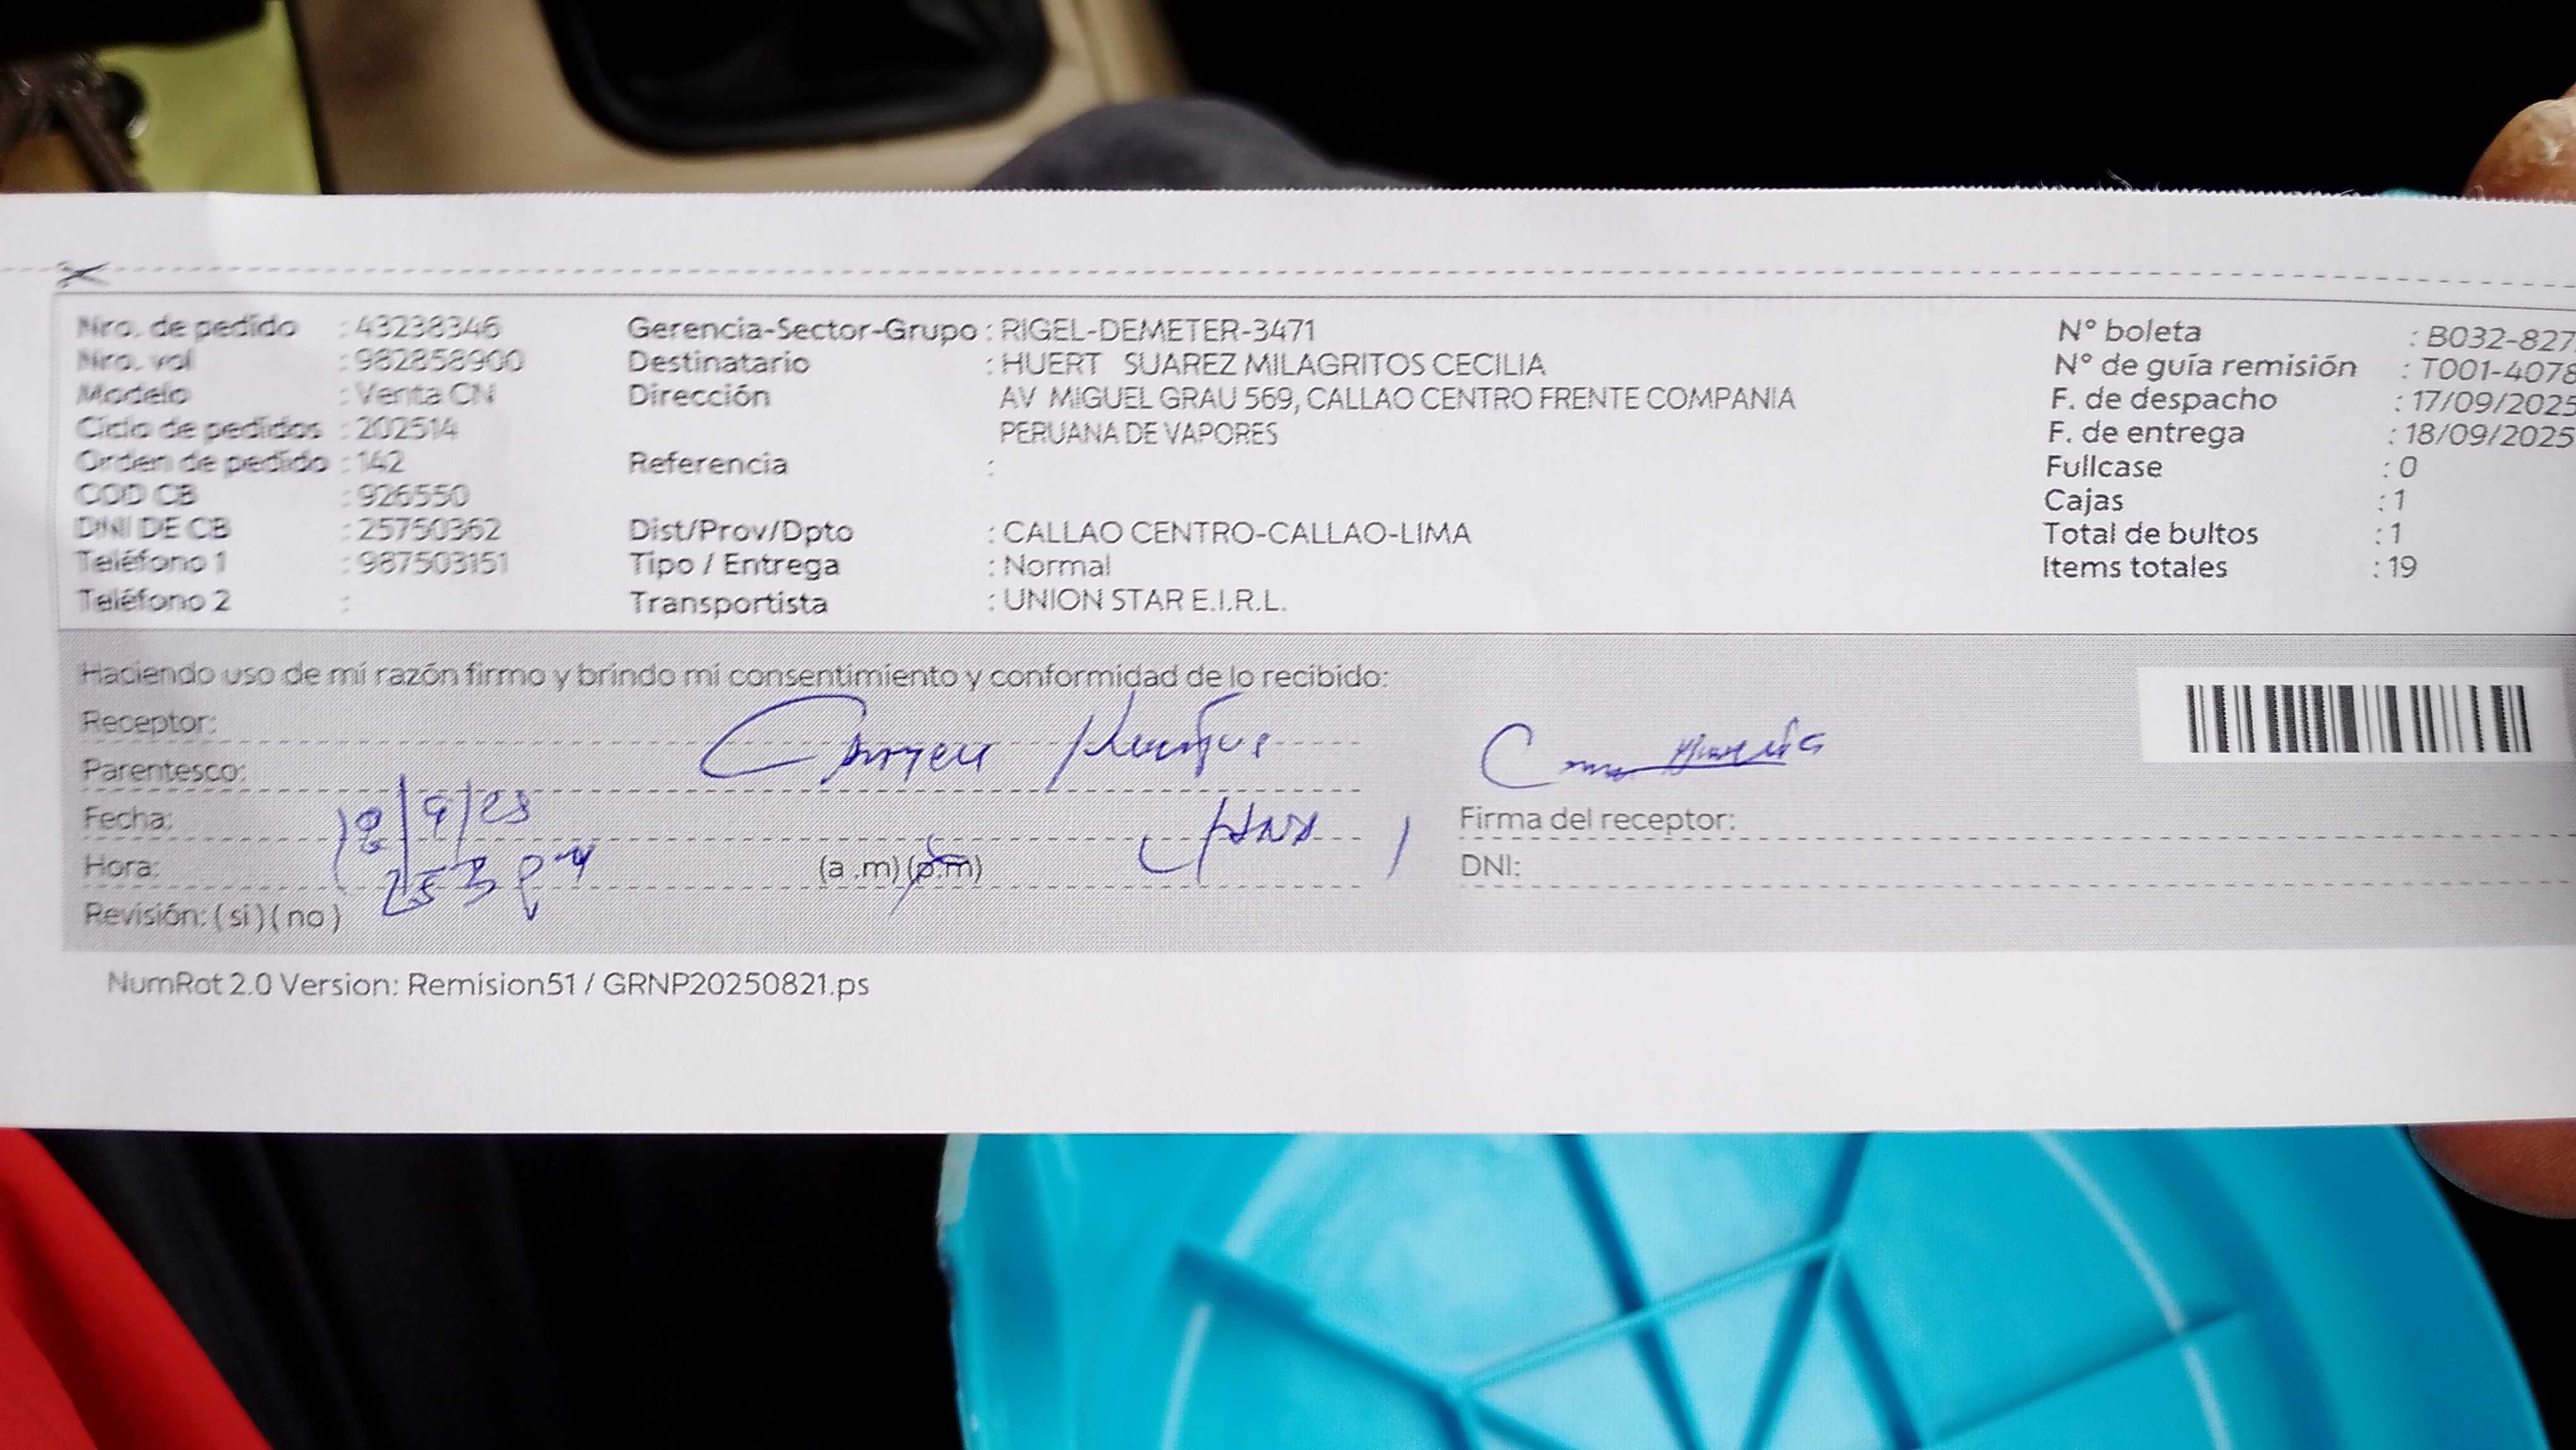 Nro. de pedido : 43238346 Gerencia-Sector-Grupo : RIGEL-DEMETER-3471 N° boleta : B032-827
Nro. vol : 982858900 Destinatario : HUERT SUAREZ MILAGRITOS CECILIA N° de guía remisión : T001-4078
Modelo : Venta CN Dirección AV MIGUEL GRAU 569, CALLAO CENTRO FRENTE COMPANIA F. de despacho : 17/09/2025
Ciclo de pedidos : 202514 PERUANA DE VAPORES F. de entrega : 18/09/2025
Orden de pedido : 142 Referencia : Fullcase : 0
COD CB : 926550 Cajas : 1
DNI DE CB : 25750362 Dist/Prov/Dpto : CALLAO CENTRO-CALLAO-LIMA Total de bultos : 1
Teléfono 1 : 987503151 Tipo / Entrega : Normal Items totales : 19
Teléfono 2 : Transportista : UNION STAR E.I.R.L.
Haciendo uso de mi razón firmo y brindo mi consentimiento y conformidad de lo recibido:
Receptor: Carmen
Parentesco:
Fecha: 18/9/25 Firma del receptor:
Hora: 253 pm (a .m) (p.m) DNI:
Revisión: ( si ) ( no )
NumRot 2.0 Version: Remision51 / GRNP20250821.ps